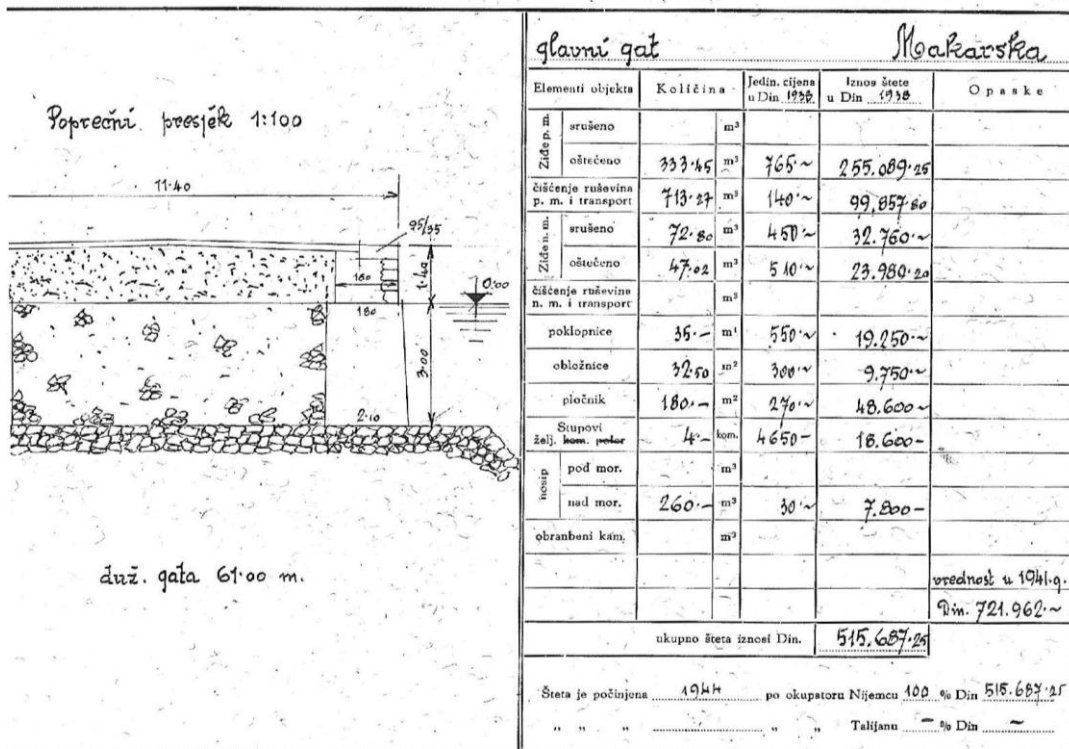 Poprečni presjek 1:100
11.40
95/35
180
1.40
0.00
180
3.00
2.10
duž. gata 61.00 m.
glavni gat Makarska
Elementi objekta Količina Jedin. cijena u Din 1938 Iznos štete u Din 1938 Opaske
Ziđe p. m. srušeno m³
oštećeno 333.45 m³ 765.~ 255.089.25
čišćenje ruševina p. m. i transport 713.27 m³ 140.~ 99.857.80
Ziđe n. m. srušeno 72.80 m³ 450.~ 32.760.~
oštećeno 47.02 m³ 510.~ 23.980.20
čišćenje ruševina n. m. i transport m³
poklopnice 35.- m¹ 550.~ 19.250.~
obložnice 32.50 m² 300.~ 9.750.~
pločnik 180.- m² 270.~ 48.600~
Stupovi želj. kom. 4.- kom. 4650- 18.600-
nosip pod mor. m³
nad mor. 260.- m³ 30.~ 7.800-
obranbeni kam. m³
vrednost u 1941.g.
Din. 721.962.~
ukupno šteta iznosi Din. 515.687.25
Šteta je počinjena 1944 po okupatoru Nijemcu 100 % Din 515.687.25
„ „ „ „ „ Talijanu - % Din ~